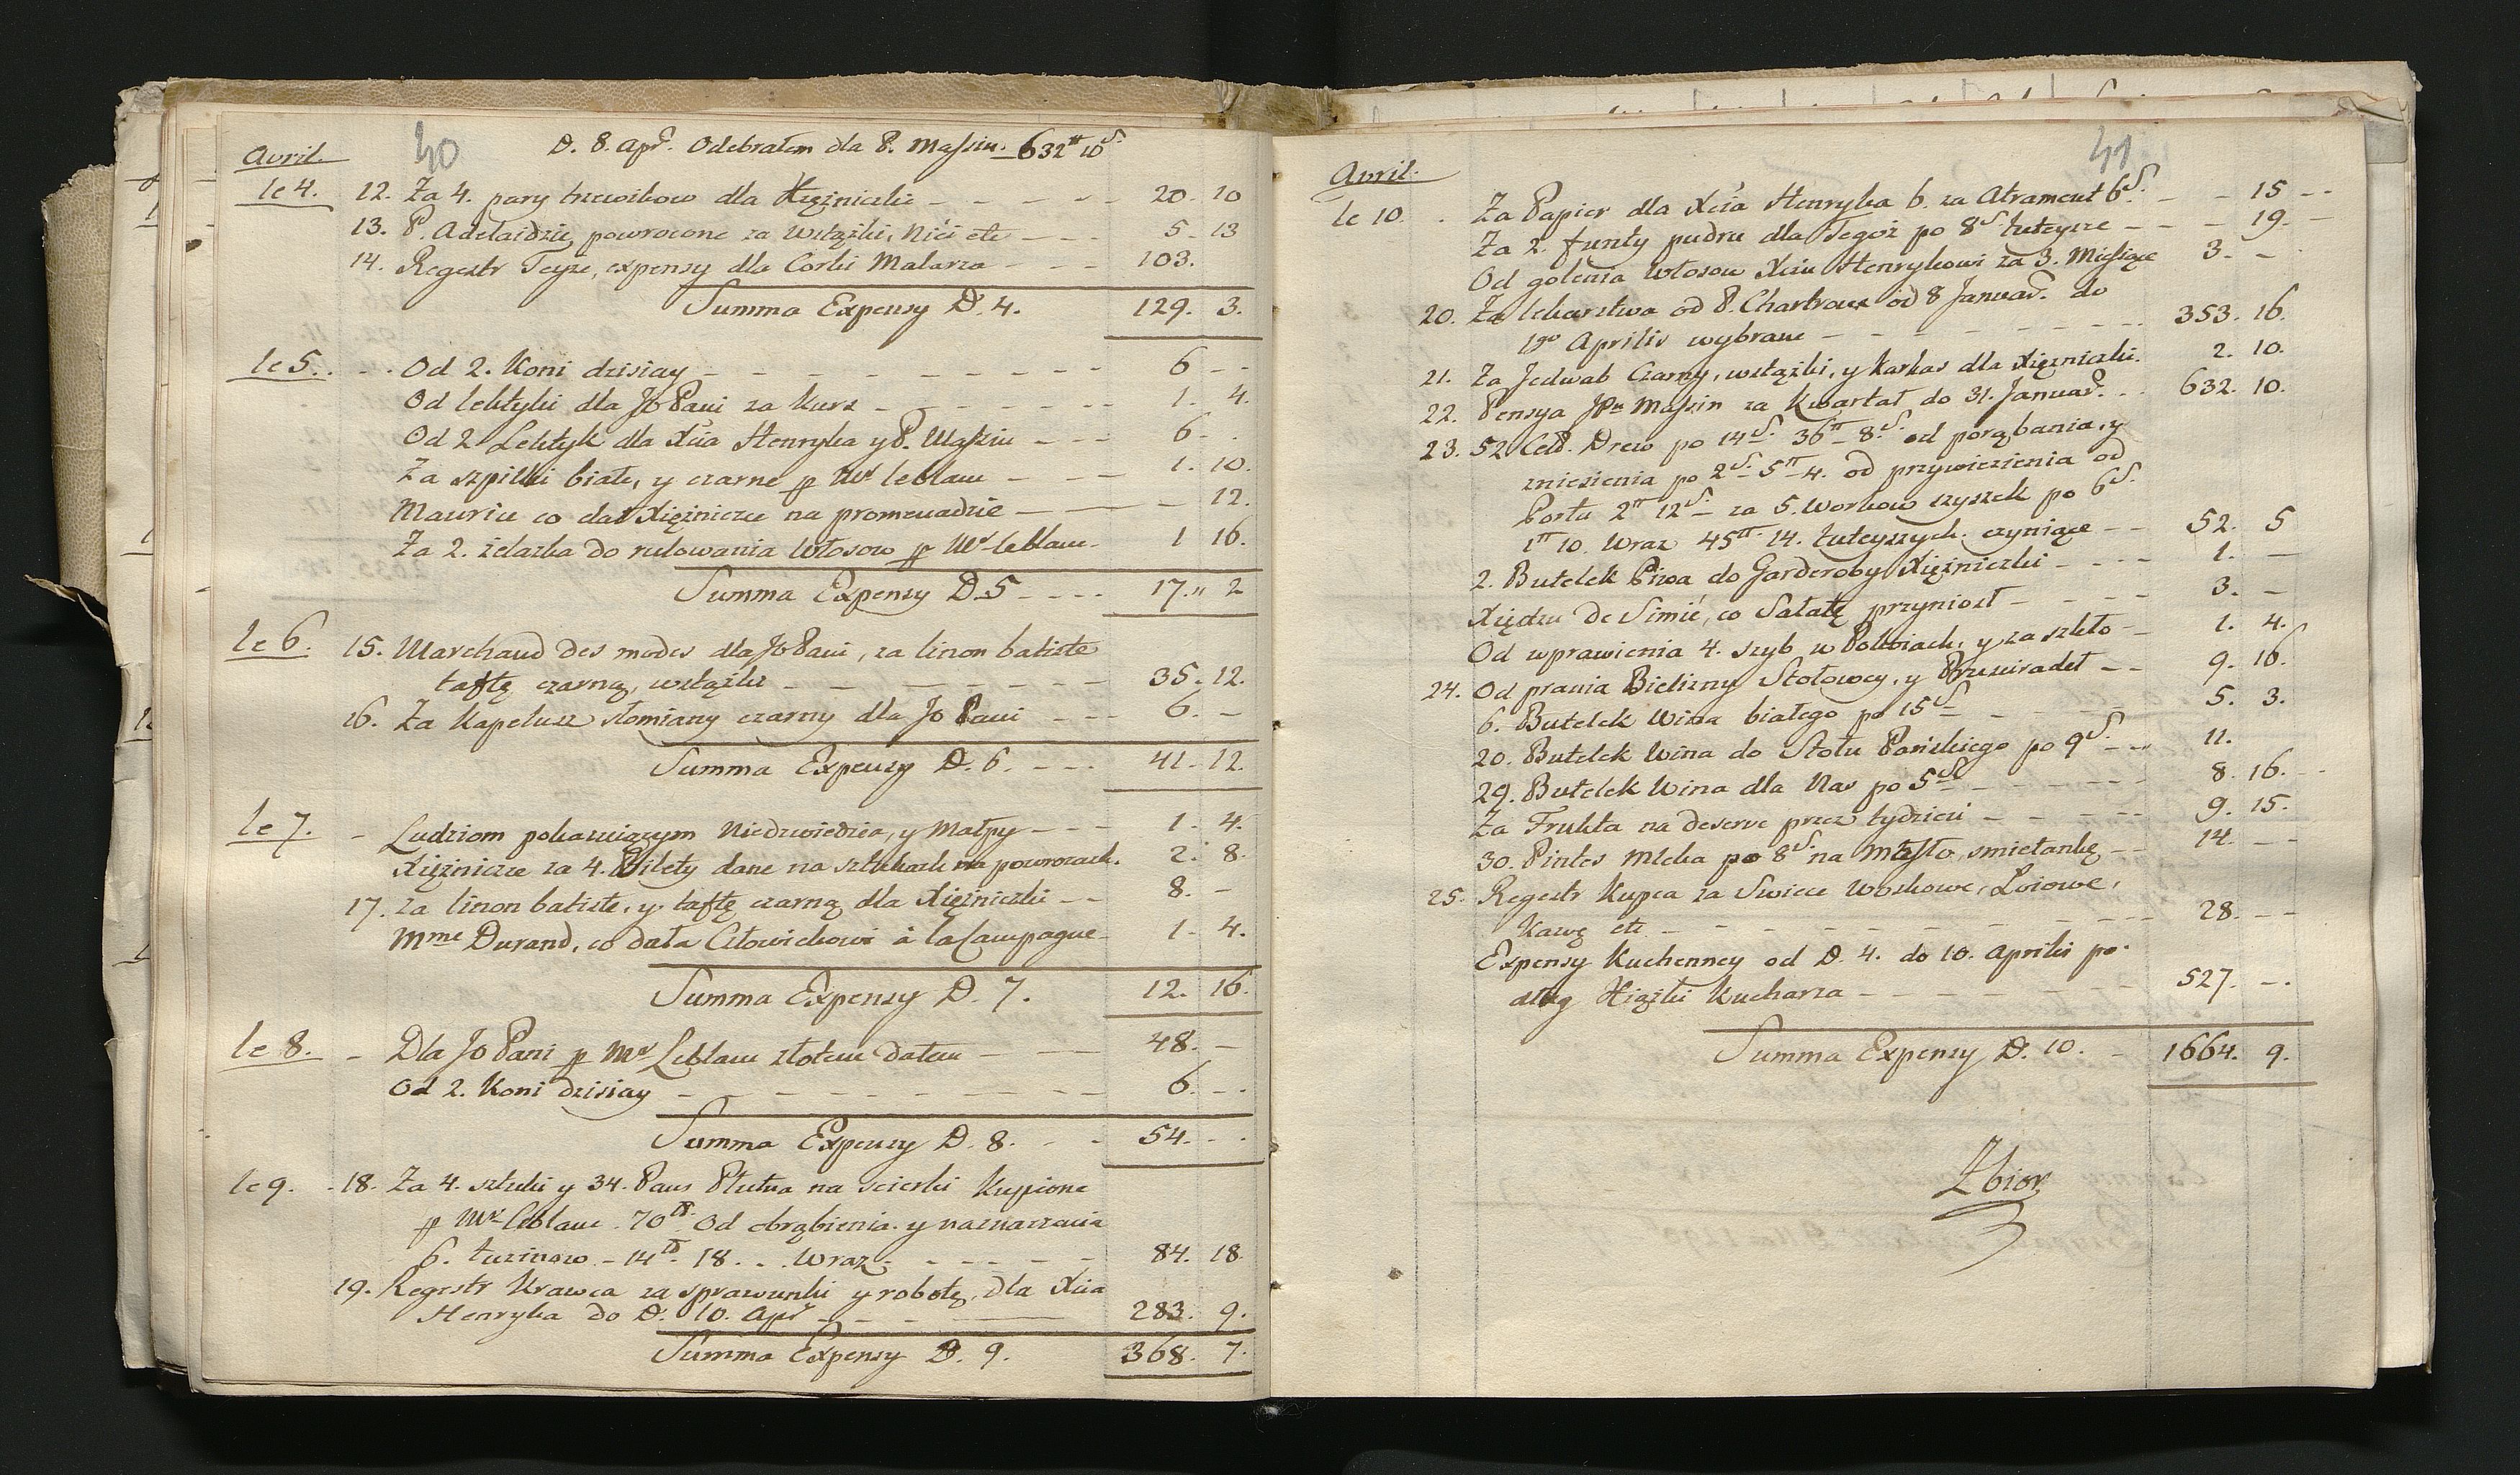 40
D. 8. Apr. Odebrałem dla P. Massin. 632 ₶ 10 S.
Avril.
le 4. 12. Za 4. pary trzewikow dla Xiężniczki - - - 20. 10
13. P. Adelaidzie powrocone za Wstążki, Nici etc - - - 5. 13
14. Regestr Teyże, expensy dla Corki Malarza - - - 103.
Summa Expensy D. 4. 129. 3.
le 5. - . Od 2. Koni dzisiay - - - 6 - -
Od lektyki dla JO Pani za Kurs - - - 1. 4.
Od 2 Lektyk dla Xcia Henryka y P. Massin - - - 6 - .
Za szpilki białe, y czarne p Mr leblanc - - - 1. 10.
Mauriu co dał Xiężniczce na promenadzie - - - 12.
Za 2. żelazka do rulowania Włosow p Mr leblanc - 1 16.
Summa Expensy D. 5 - - - - 17. " 2
le 6. 15. Marchand des modes dla JO Pani, za linon batiste
taftę czarną, wstążki - - - 35. 12.
16. Za Kapelusz słomiany czarny dla JO Pani - - - 6. -
Summa Expensy D. 6. - - - 41. 12.
le 7. - Ludziom pokazuiącym Niedzwiedzia, y Małpy - - - 1. 4.
Xiężniczce za 4. Bilety dane na sztukach na powrozach. 2. 8.
17. za linon batiste, y taftę czarną dla Xiężniczki - - 8. -
Mme Durand, co dała Człowiekowi à la Campagne - 1. 4.
Summa Expensy D. 7. 12. 16.
le 8. - Dla JO Pani p Mr Leblanc złotem dałem - - - 48. -
Od 2. Koni dzisiay - - - 6. - .
Summa Expensy D. 8. - - 54. - .
le 9. - 18. Za 4. sztuki y 34. Paus Płutna na scierki Kupione
p Mr leblanc 70 ₶. Od obrąbienia y naznaczenia
6. tuzinow - 14 ₶. 18. . . Wraz - - - 84. 18
19. Regestr Krawca za sprawunki y robotę, dla Xcia
Henryka do D. 10. Apr - - - 283. 9.
Summa Expensy D. 9. 368. 7.
41
Avril.
le 10. . Za Papier dla Xcia Henryka 6. za Atrament 6 S. - - 15 - -
Za 2. funty pudru dla Tegoż po 8 S tuteysze - - - 19. -
Od golenia Włosow Xciu Henrykowi za 3. Miesiące 3. - -
20. Za lekarstwa od P. Chartroux od 8 Januar. do
19o Aprilis wybrane - - - 353. 16.
21. Za Jedwab Czarny, wstążki, y Karkas dla Xiężniczki. 2. 10.
22. Pensya JPn Massin za Kwartał do 31. Januar. . . 632. 10.
23. 52 Drew po 14 S. 36 ₶ 8. S. od porąbania, y
zniesienia po 2 S. 5 ₶ 4. od przywiezienia od
Portu 2 ₶ 12 S. - za 5. Workow szyszek po 6 S.
1 ₶ 10. Wraz 45 ₶ 14. tuteyszych czyniące - - 52. 5
2. Butelek Piwa do Garderoby Xiężniczki - - - 1. -
Xiędzu de Simié, co Sałatę przyniosł - - - 3. -
Od wprawienia 4. szyb w Pokoiach, y za szkło - 1. 4.
24. Od prania Bielizny Stołowey, y Przescieradeł - - 9. 16.
6. Butelek Wina białego po 15 S - - - 5. 3.
20. Butelek Wina do Stołu Pańskiego po 9 S. - - 11.
29. Butelek Wina dla Nas po 5 S - - - 8. 16. - -
Za Frukta na deserve przez tydzień - - - 9. 15.
30. Pintes Mleka po 8 S. na Masło, smietankę - - 14. - -
25. Regestr Kupca za Swiece Woskowe, Loiowe,
Kawę etc - - - 28. - -
Expensy Kuchenney od D. 4. do 10. Aprilis po-
dług Xiążki Kucharza - - - 527. - -.
Summa Expensy D. 10. - 1664. 9.
Zbior